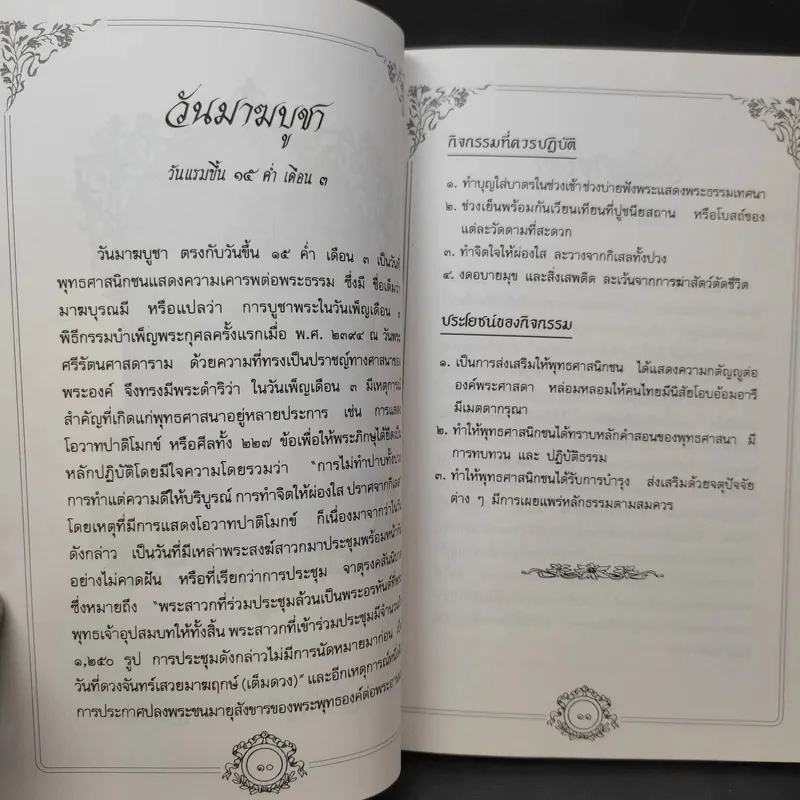 วันมาฆบูชา
วันแรมขึ้น ๑๕ ค่ำ เดือน ๓
วันมาฆบูชา ตรงกับวันขึ้น ๑๕ ค่ำ เดือน ๓ เป็นวันที่
พุทธศาสนิกชนแสดงความเคารพต่อพระธรรม ซึ่งมี ชื่อเต็มว่า
มาฆบุรณมี หรือแปลว่า การบูชาพระในวันเพ็ญเดือน ๓
พิธีกรรมบำเพ็ญพระกุศลครั้งแรกเมื่อ พ.ศ. ๒๓๙๔ ณ วันพระ
ศรีรัตนศาสดาราม ด้วยความที่ทรงเป็นปราชญ์ทางศาสนาของ
พระองค์ จึงทรงมีพระดำริว่า ในวันเพ็ญเดือน ๓ มีเหตุการณ์
สำคัญที่เกิดแก่พุทธศาสนาอยู่หลายประการ เช่น การแสดง
โอวาทปาติโมกข์ หรือศีลทั้ง ๒๒๗ ข้อเพื่อให้พระภิกษุได้ยึดเป็น
หลักปฏิบัติโดยมีใจความโดยรวมว่า "การไม่ทำบาปทั้งปวง
การทำแต่ความดีให้บริบูรณ์ การทำจิตให้ผ่องใส ปราศจากกิเลส"
โดยเหตุที่มีการแสดงโอวาทปาติโมกข์ ก็เนื่องมาจากว่าในวัน
ดังกล่าว เป็นวันที่มีเหล่าพระสงฆ์สาวกมาประชุมพร้อมหน้ากัน
อย่างไม่คาดฝัน หรือที่เรียกว่าการประชุม จาตุรงคสันนิบาต
ซึ่งหมายถึง "พระสาวกที่ร่วมประชุมล้วนเป็นพระอรหันต์ที่พระ
พุทธเจ้าอุปสมบทให้ทั้งสิ้น พระสาวกที่เข้าร่วมประชุมมีจำนวน
๑,๒๕๐ รูป การประชุมดังกล่าวไม่มีการนัดหมายมาก่อน
วันที่ดวงจันทร์เสวยมาฆฤกษ์ (เต็มดวง)" และอีกเหตุการณ์หนึ่ง
การประกาศปลงพระชนมายุสังขารของพระพุทธองค์ต่อพระอานนท์
๑๐
กิจกรรมที่ควรปฏิบัติ
๑. ทำบุญใส่บาตรในช่วงเช้าช่วงบ่ายฟังพระแสดงพระธรรมเทศนา
๒. ช่วงเย็นพร้อมกันเวียนเทียนที่ปูชนียสถาน หรือโบสถ์ของ
แต่ละวัดตามที่สะดวก
๓. ทำจิตใจให้ผ่องใส ละวางจากกิเสลทั้งปวง
๔. งดอบายมุข และสิ่งเสพติด ละเว้นจากการฆ่าสัตว์ตัดชีวิต
ประโยชน์ของกิจกรรม
๑. เป็นการส่งเสริมให้พุทธศาสนิกชน ได้แสดงความกตัญญูต่อ
องค์พระศาสดา หล่อมหลอมให้คนไทยมีนิสัยโอบอ้อมอารี
มีเมตตากรุณา
๒. ทำให้พุทธศาสนิกชนได้ทราบหลักคำสอนของพุทธศาสนา มี
การทบทวน และ ปฏิบัติธรรม
๓. ทำให้พุทธศาสนิกชนได้รับการบำรุง ส่งเสริมด้วยจตุปัจจัย
ต่าง ๆ มีการเผยแพร่หลักธรรมตามสมควร
๑๑